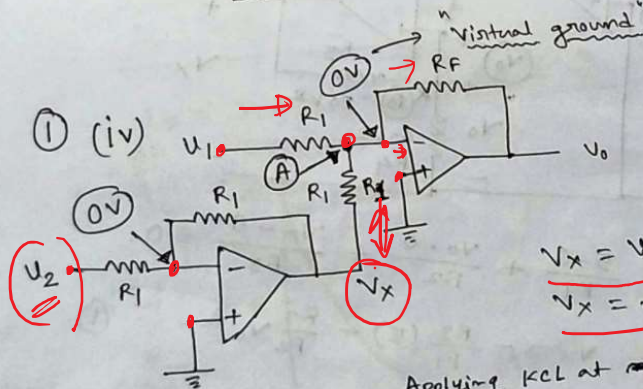 "virtual ground"
0V
RF
① (iv)
U1
R1
Ⓐ
−
+
V0
R1
R1
0V
R1
U2
R1
−
+
Vx
Vx = V
Vx =
Applying KCL at